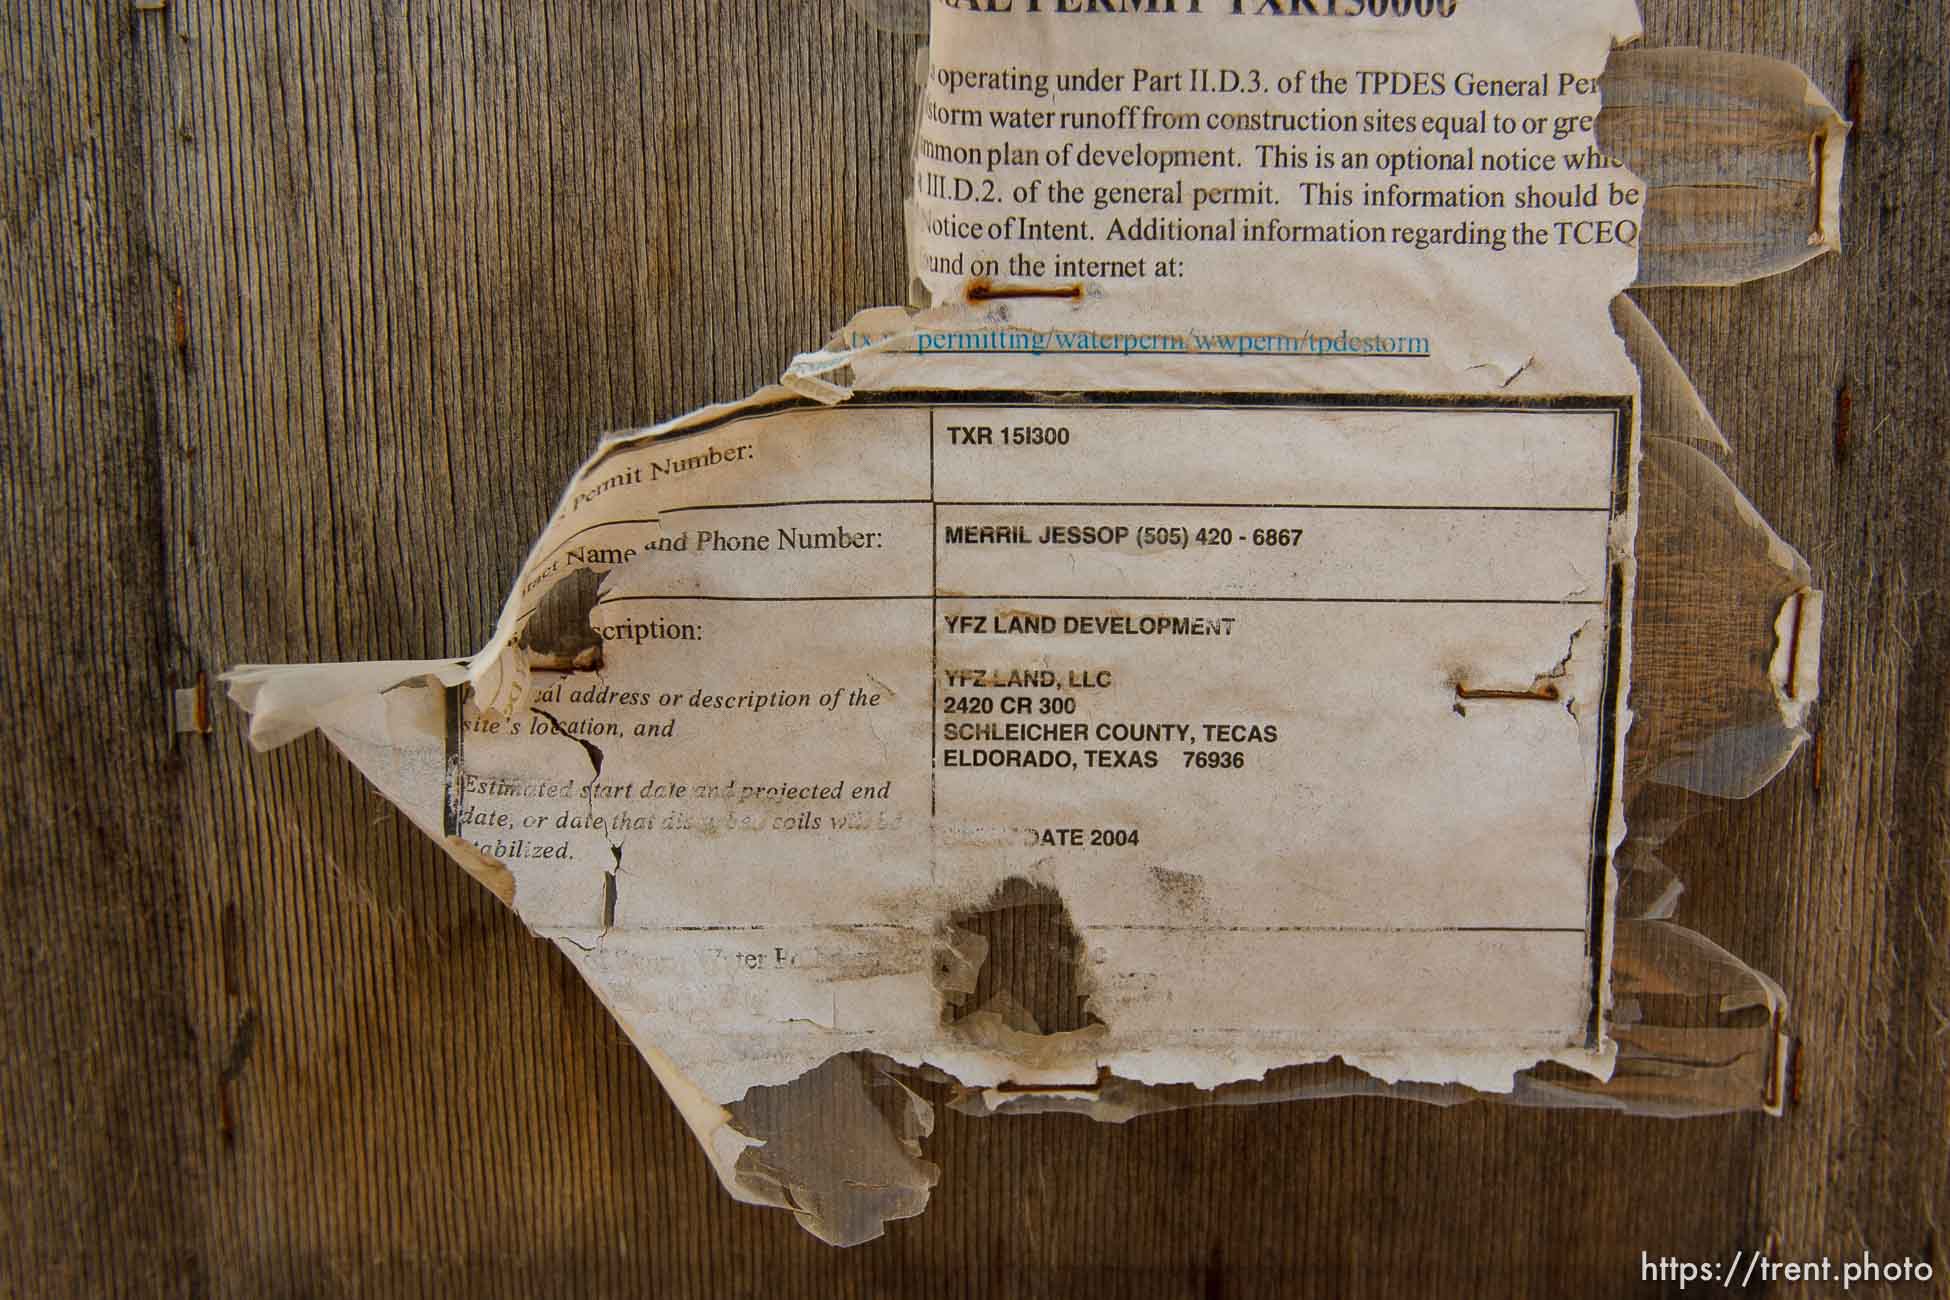 AL PERMIT TXR150000
operating under Part II.D.3. of the TPDES General Per
storm water runoff from construction sites equal to or gre
mmon plan of development. This is an optional notice whic
III.D.2. of the general permit. This information should be
Notice of Intent. Additional information regarding the TCEQ
ound on the internet at:
tx permitting/waterperm/wwperm/tpdestorm
Permit Number:
TXR 15I300
tact Name and Phone Number:
MERRIL JESSOP (505) 420 - 6867
scription:
YFZ LAND DEVELOPMENT
cal address or description of the
site's location, and
YFZ LAND, LLC
2420 CR 300
SCHLEICHER COUNTY, TECAS
ELDORADO, TEXAS 76936
Estimated start date and projected end
date, or date that disturbed soils will be
stabilized.
DATE 2004
Water
https://trent.photo